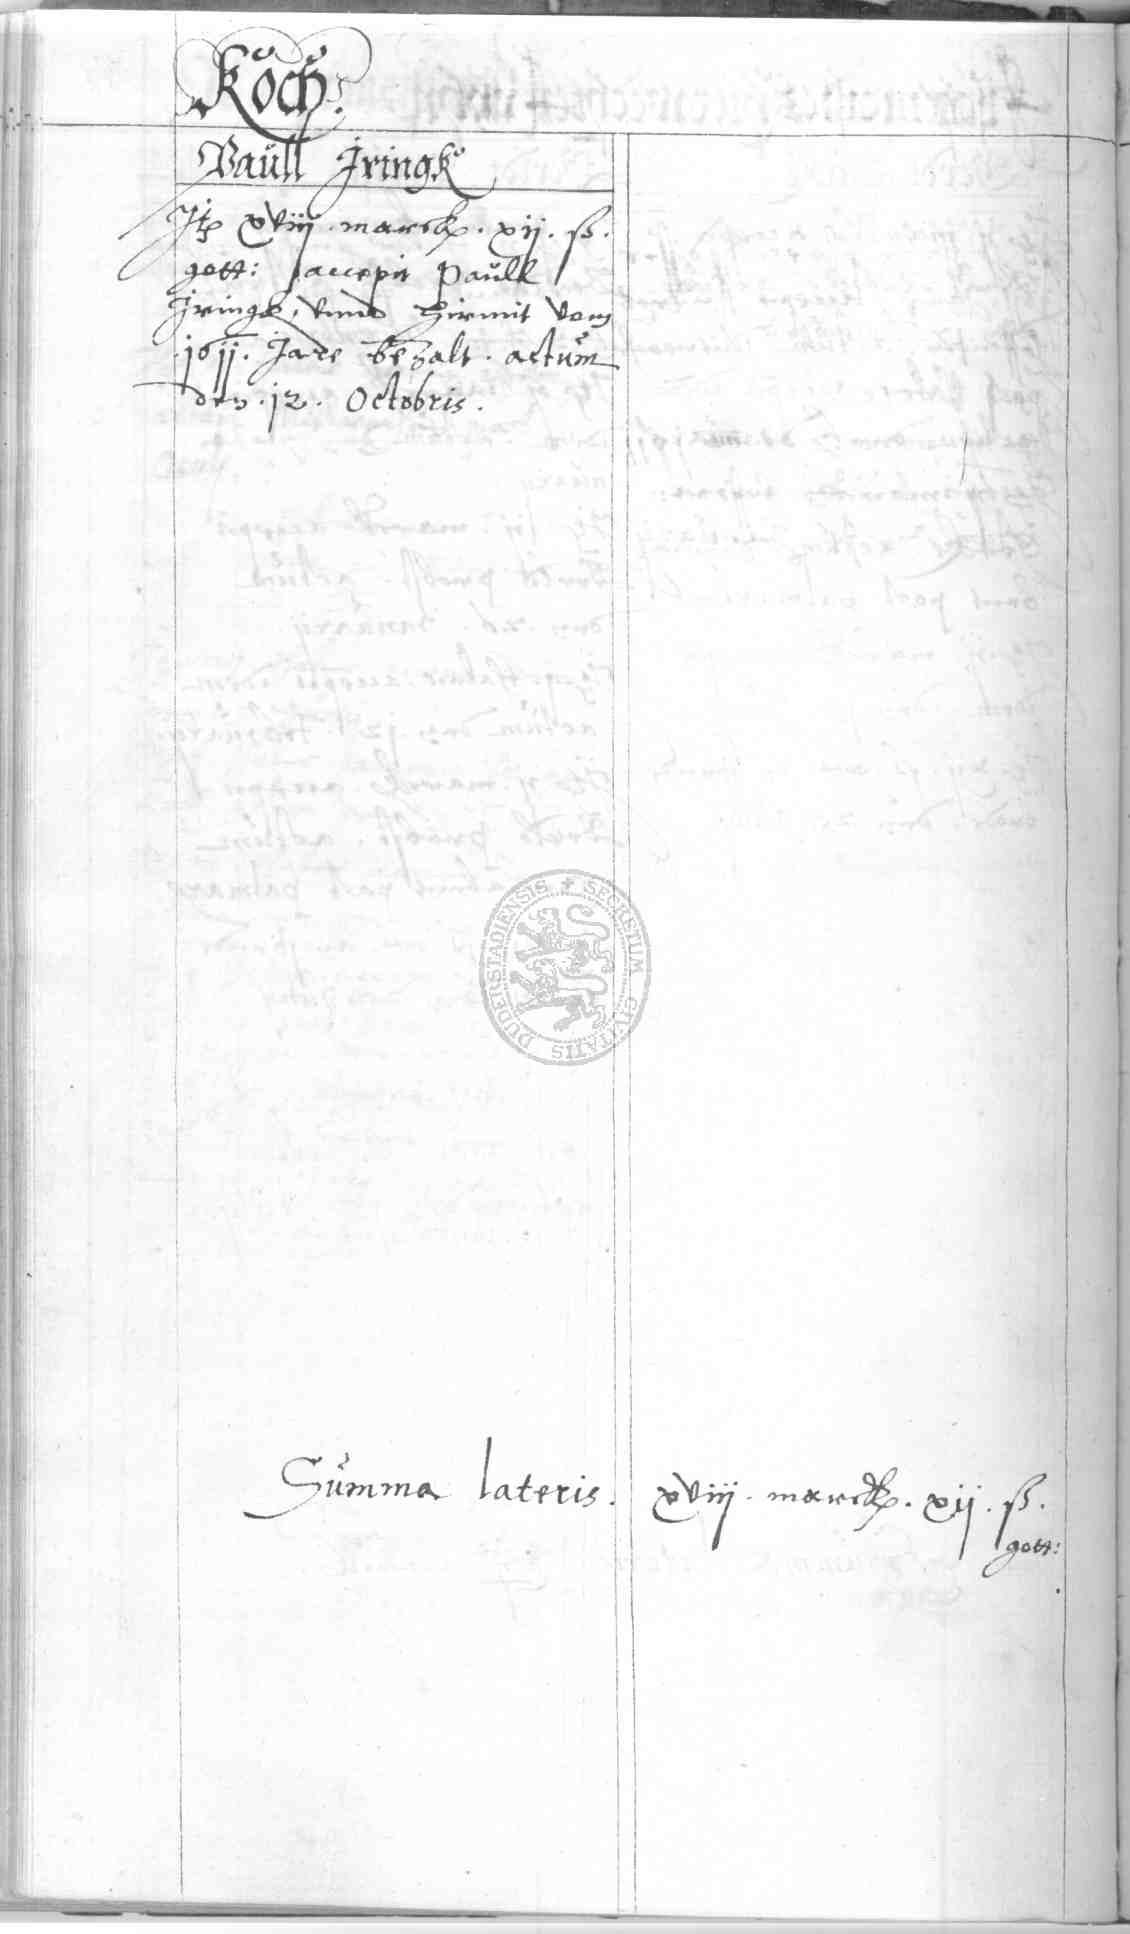 Köch.
Paüll Jringk
Jtem xviij. marck. xij. ß.
gott: accepit Paüll
Jringk, vnnd hirmit vom
.1611. Jare bezalt. actüm
den .12. Octobris.
DUDERSTADIENSIS + SECRETUM CIVITATIS
Sümma lateris. xviij. marck. xij. ß.
gott: